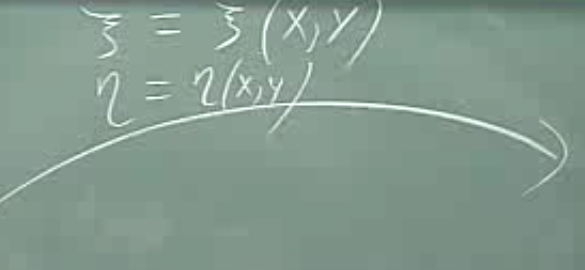 ξ = ξ(x,y)
η = η(x,y)